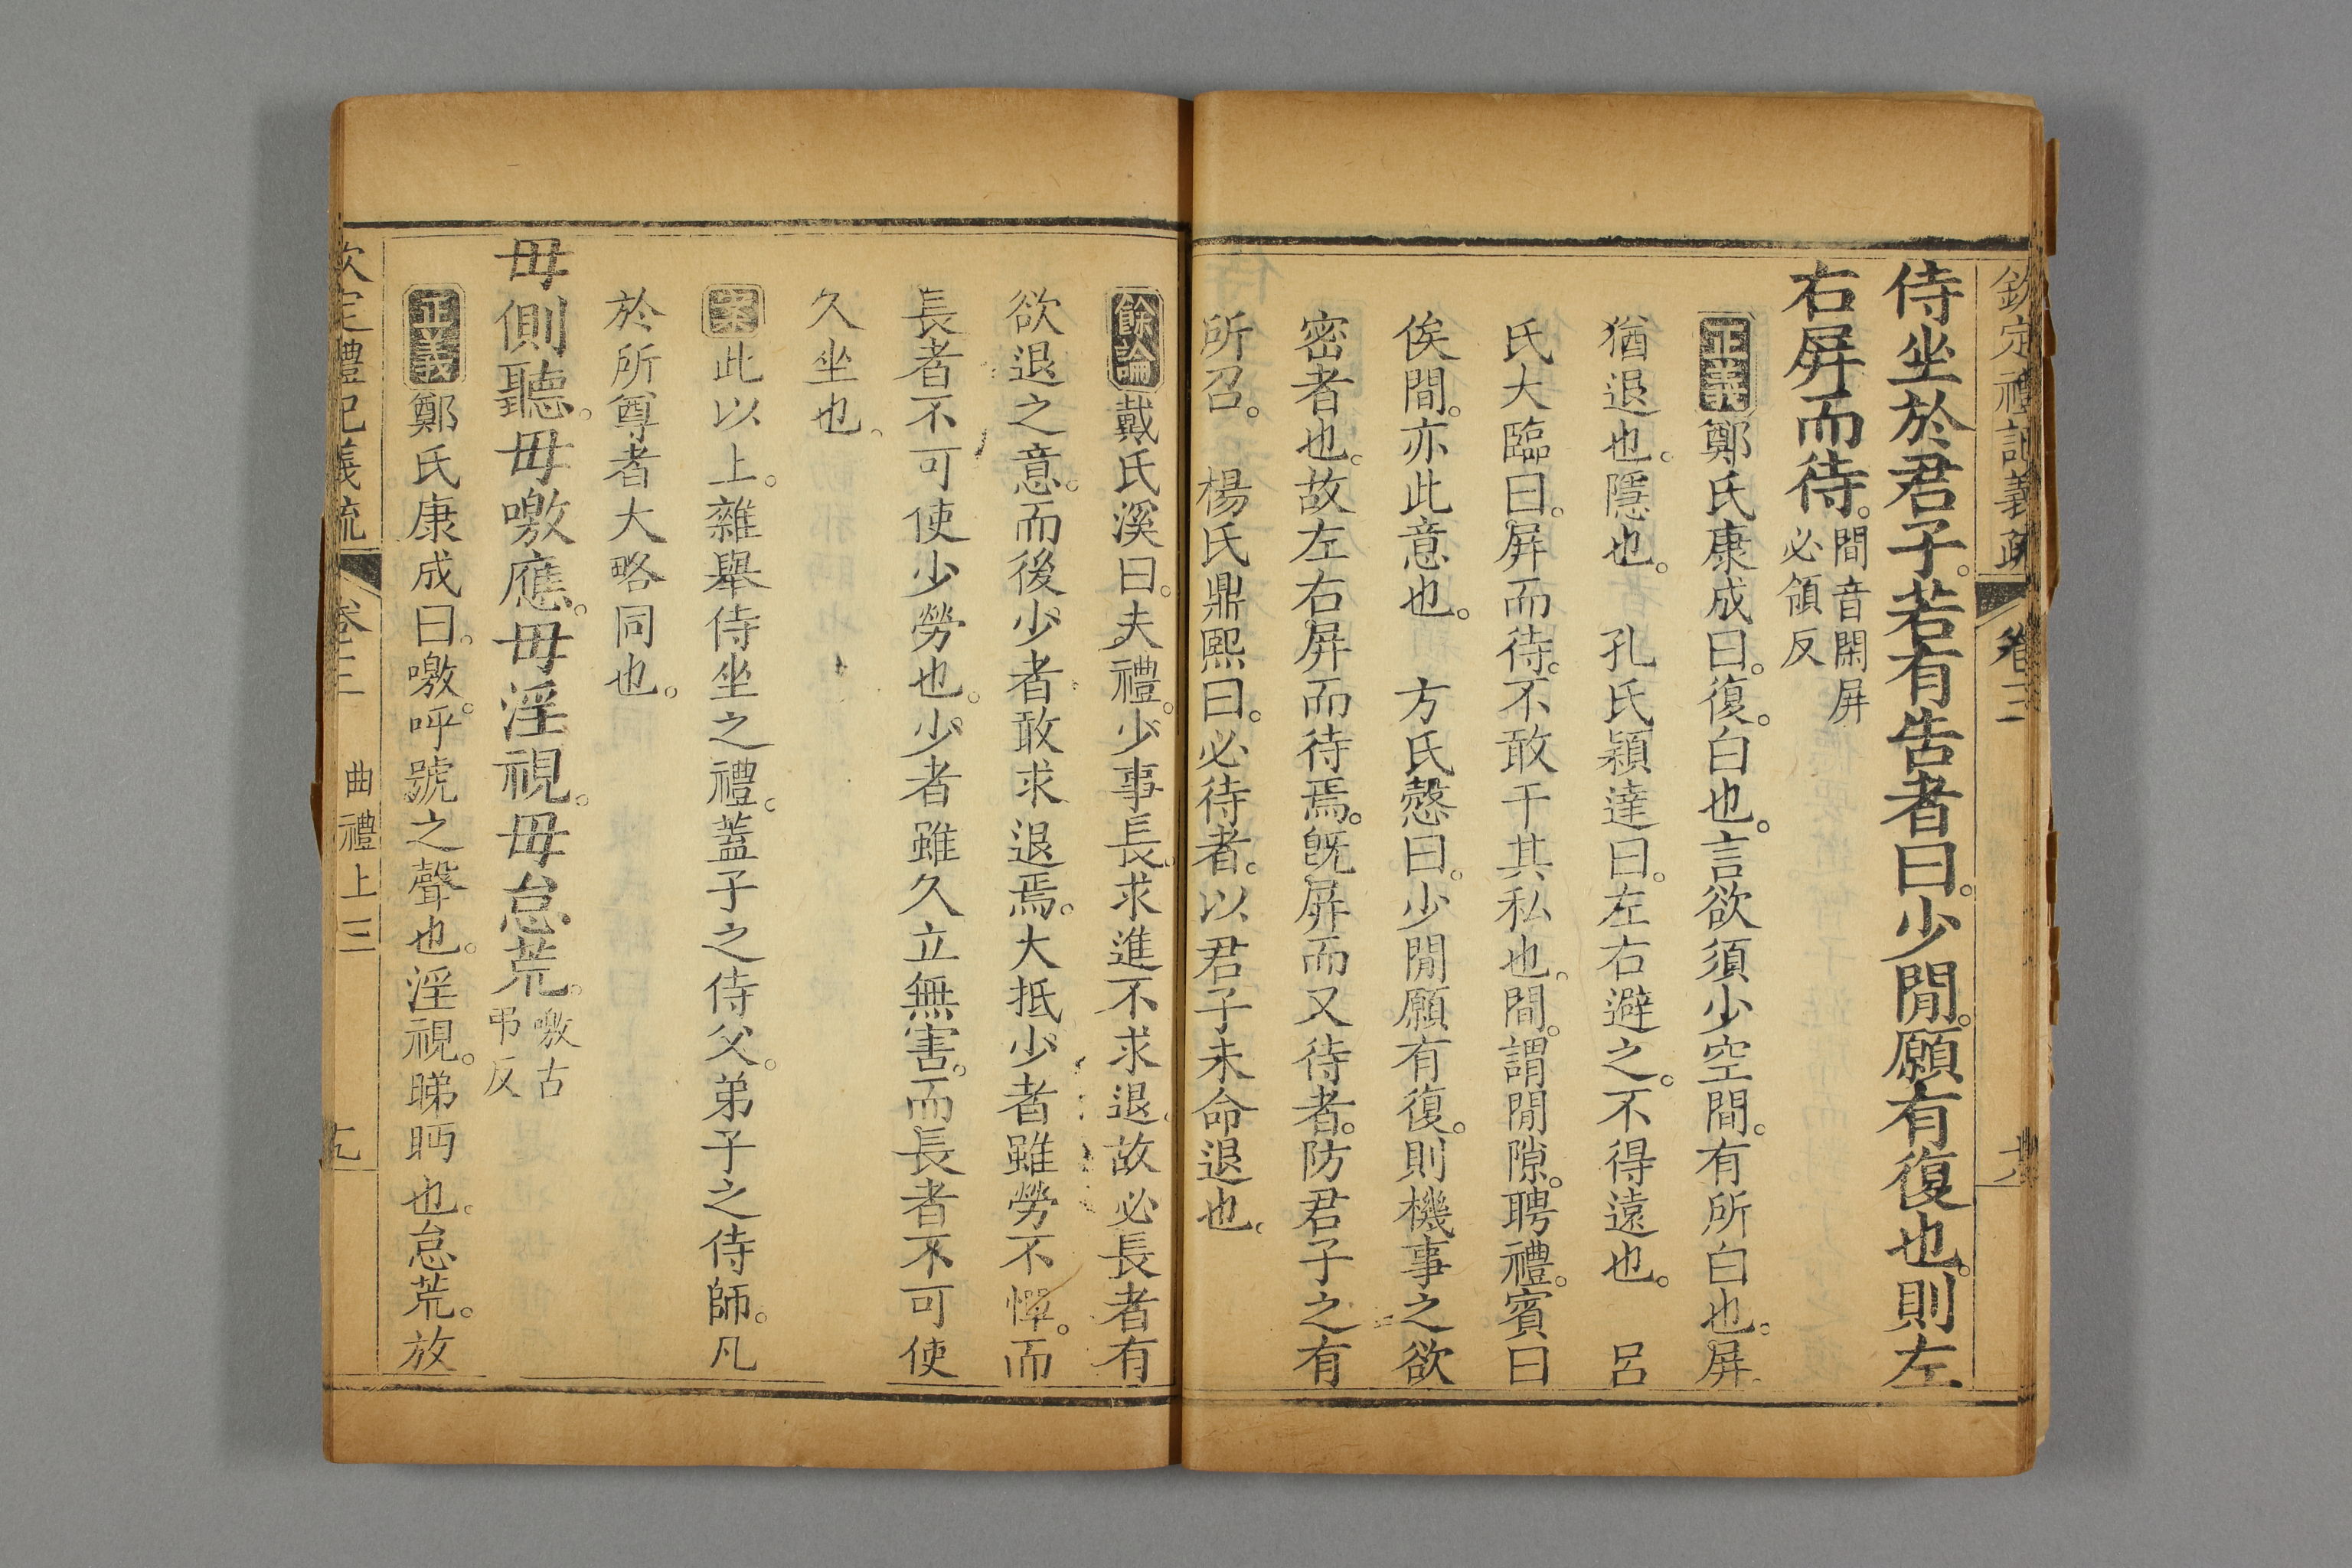 欽定禮記義疏 卷三
侍坐於君子。若有告者曰。少閒。願有復也。則左
右屛而待。間音閑屛
必領反
正義鄭氏康成曰。復。白也。言欲須少空間。有所白也。屛。
猶退也。隱也。 孔氏穎達曰。左右避之。不得遠也。 呂
氏大臨曰。屛而待。不敢干其私也。間。謂閒隙。聘禮。賓曰
俟間。亦此意也。 方氏慤曰。少閒願有復。則機事之欲
密者也。故左右屛而待焉。旣屛而又待者。防君子之有
所召。 楊氏鼎熙曰。必待者。以君子未命退也。
餘論戴氏溪曰。夫禮。少事長。求進不求退。故必長者有
欲退之意。而後少者敢求退焉。大抵少者雖勞不憚。而
長者不可使少勞也。少者雖久立無害。而長者不可使
久坐也。
案此以上。雜舉侍坐之禮。蓋子之侍父。弟子之侍師。凡
於所尊者大略同也。
毋側聽。毋噭應。毋淫視。毋怠荒。噭古
弔反
正義鄭氏康成曰。噭。呼號之聲也。淫視。睇眄也。怠荒。放
欽定禮記義疏 卷三 曲禮上三